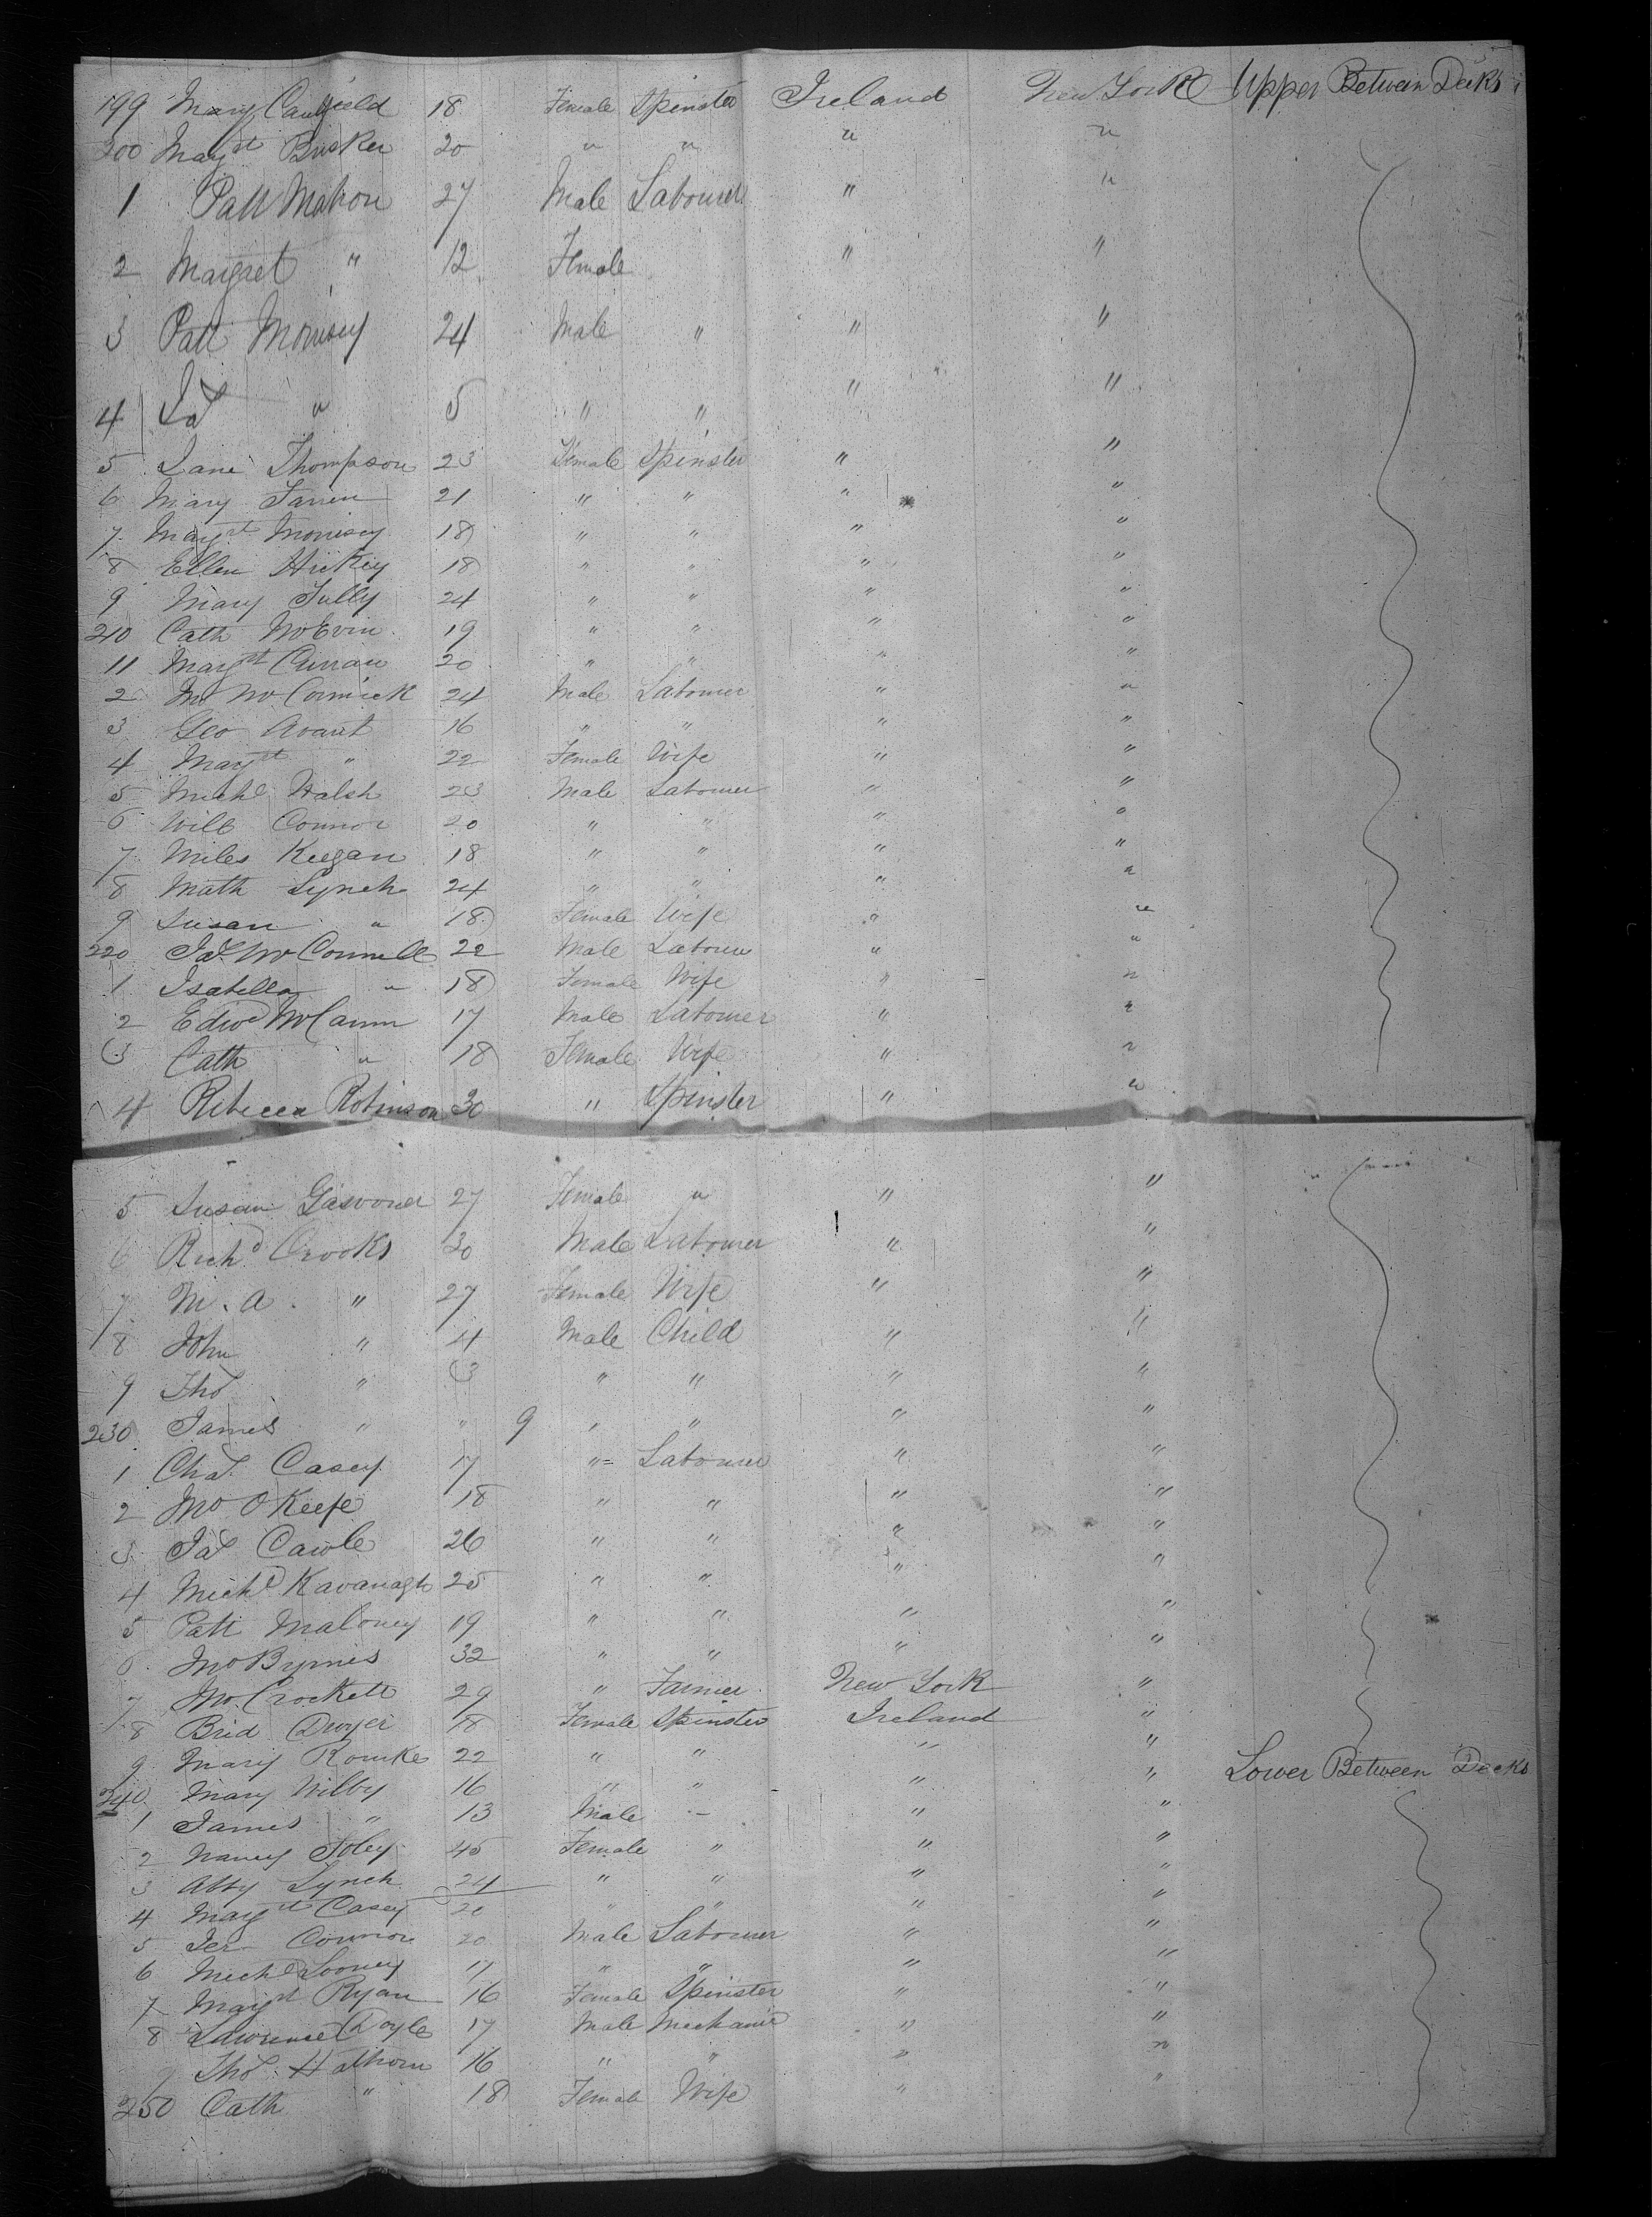 199 Mary Caulfield 18 Female Spinster Ireland New York Upper Between Decks
200 Margt Busker 20 " " " "
1 Patt Mahon 27 Male Labourer " "
2 Margret " 12 Female " "
3 Patt Morrisey 24 Male " " "
4 Jas " 5 " " " "
5 Jane Thompson 23 Female Spinster " "
6 Mary Farren 21 " " " "
7 Margt Morrisey 18 " " " "
8 Ellen Hickey 18 " " " "
9 Mary Tully 24 " " " "
210 Cath McEvin 19 " " " "
11 Margt Curran 20 " " " "
2 McCormick 24 Male Labourer " "
3 Geo Avant 16 " " " "
4 Margt " 22 Female Wife " "
5 Michl Walsh 23 Male Labourer " "
6 Will Connor 20 " " " "
7 Miles Keegan 18 " " " "
8 Math Lynch 24 " " " "
9 Susan " 18 Female Wife " "
220 Jas McConnell 22 Male Labourer " "
1 Isabella " 18 Female Wife " "
2 Edwd McCann 17 Male Labourer " "
3 Cath " 18 Female Wife " "
4 Rebecca Robinson 30 " Spinster " "
5 Susan 27 Female " " "
6 Richd Crooks 30 Male Labourer " "
7 M. A. " 27 Female Wife " "
8 John " 4 Male Child " "
9 Thos " 3 " " " "
230 James " " 9 " " " "
1 Chas Casey 17 " Labourer " "
2 Jno O Keefe 18 " " " "
3 Jas Cawle 26 " " " "
4 Michl Kavanagh 25 " " " "
5 Patt Maloney 19 " " " "
6 Jno Byrnes 32 " " " "
7 Jno Crockett 29 " Farmer New York "
8 Brid Dwyer 18 Female Spinster Ireland "
9 Mary Rourke 22 " " " "
240 Mary Wilby 16 " " " " Lower Between Decks
1 James " 13 Male - " "
2 Nancy Foley 45 Female " " "
3 Abby Lynch 24 " " " "
4 Margt Casey 20 " " " "
5 Jer Connor 20 Male Labourer " "
6 Michl Looney 17 " " " "
7 Margt Ryan 16 Female Spinster " "
8 Lawrence Doyle 17 Male Mechanic " "
9 Thos Hathorn 16 " " " "
250 Cath " 18 Female Wife " "